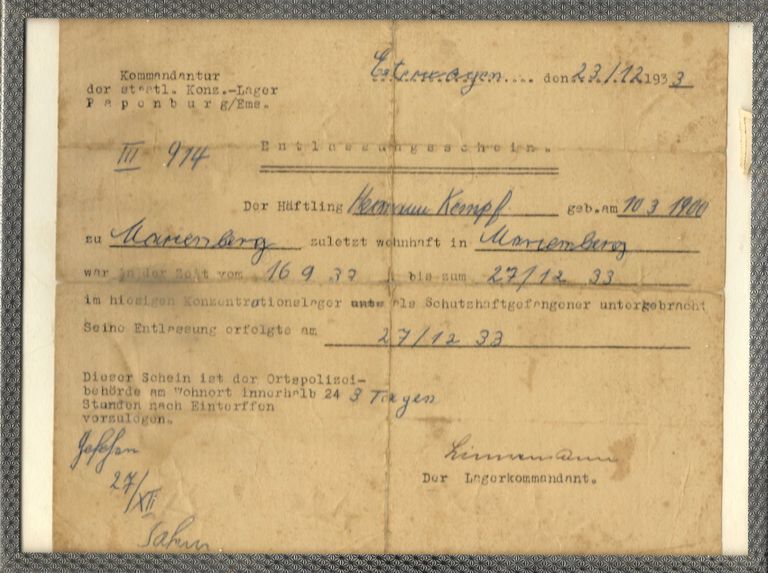 Kommandantur
der staatl. Konz.-Lager
Papenburg/Ems.
Esterwegen.... den 23/12 1933
III 914
Entlassungsschein.
Der Häftling Hermann Kempf geb.am 10 3 1900
zu Marienberg zuletzt wohnhaft in Marienberg
war in der Zeit vom 16 9 33 bis zum 27/12 33
im hiesigen Konzentrationslager als Schutzhaftgefangener untergebracht
Seine Entlassung erfolgte am 27/12 33
Dieser Schein ist der Ortspolizei-
behörde am Wohnort innerhalb 24 3 Tagen
Stunden nach Einterffen
vorzulegen.
Gesehen
27/XII
Der Lagerkommandant.